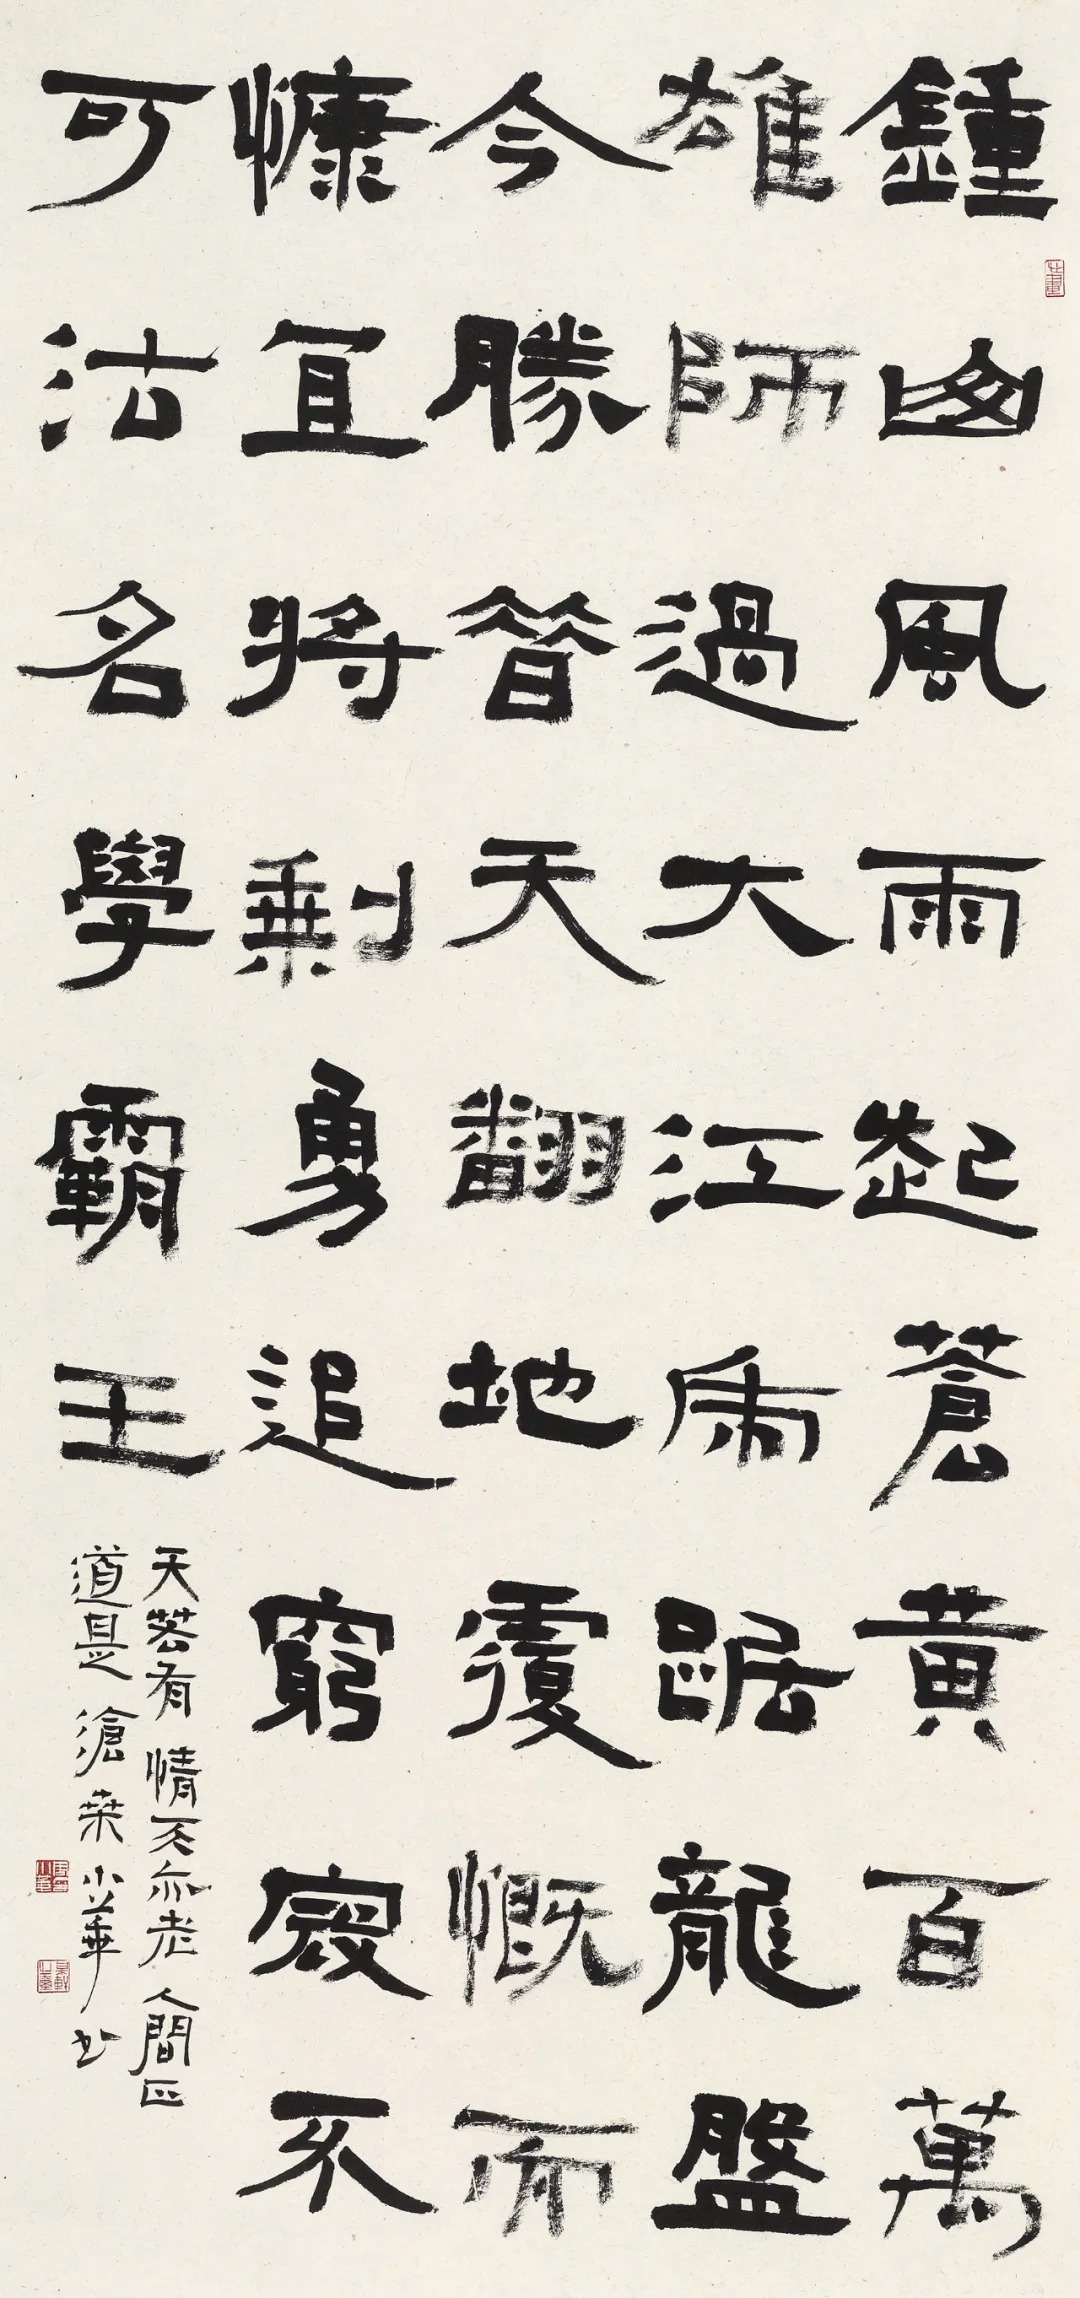 鍾山風雨起蒼黃百萬
雄師過大江虎踞龍盤
今勝昔天翻地覆慨而
慷宜將剩勇追窮寇不
可沽名學霸王
天若有情天亦老人間正
道是滄桑小華书